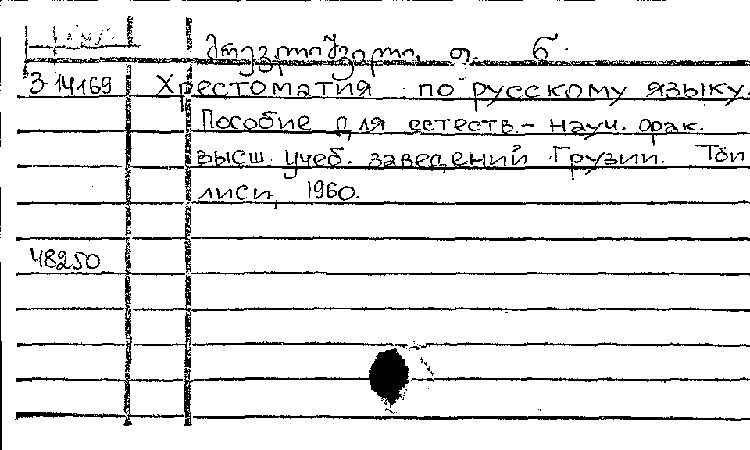 З 14169 Хрестоматия по русскому языку.
Пособие для естеств.- науч. фак.
высш. учеб. заведений Грузии. Тби
лиси, 1960.
48250